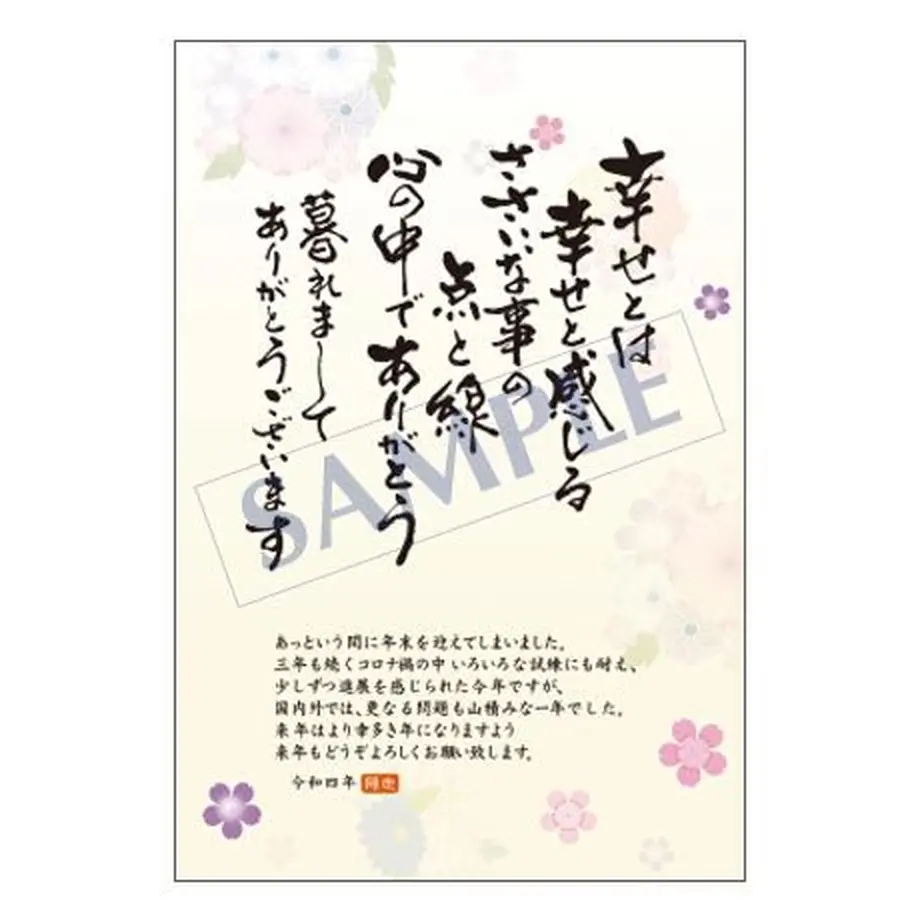 幸せとは
幸せと感じる
ささいな事の
点と線
心の中でありがとう
暮れまして
ありがとうございます
SAMPLE
あっという間に年末を迎えてしまいました。
三年も続くコロナ禍の中いろいろな試練にも耐え、
少しずつ進展を感じられた今年ですが、
国内外では、更なる問題も山積みな一年でした。
来年はより幸多き年になりますよう
来年もどうぞよろしくお願い致します。
令和四年 師走